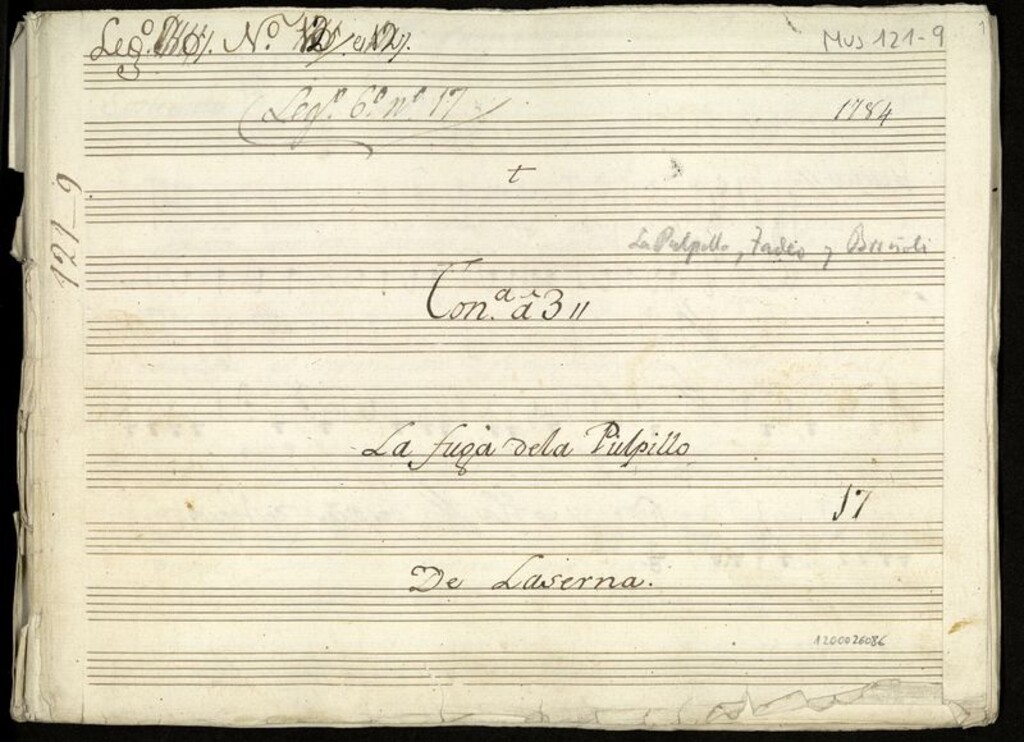 Leg.º Nº
MUS 121-9
1
(Leg.º 6.º nº 17
1784
t
121-9
La Pulpillo, Tadeo y Briñoli
Ton.ª â 3 //
La fuga dela Pulpillo
17
De Laserna.
1200026086